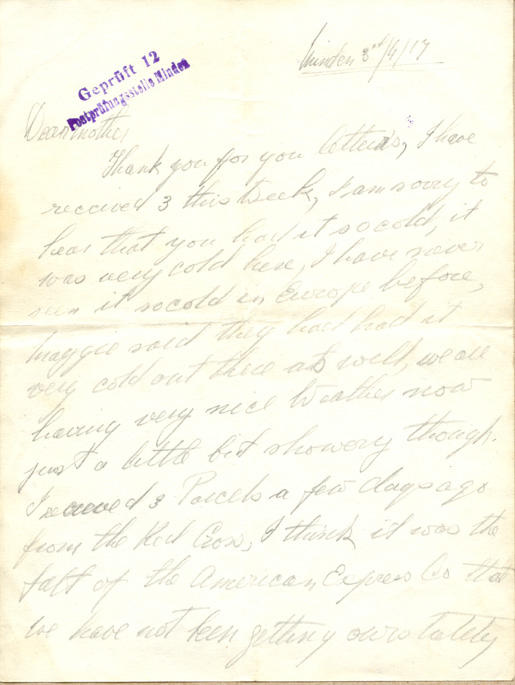 Minden 3rd/4/17
Geprüft 12
Postprüfungsstelle Minden
Dear mother
Thank you for you letters, I have
received 3 this week, I am sorry to
hear that you had it so cold, it
was very cold here, I have never
seen it so cold in Europe before,
Maggie said they had had it
very cold out there as well, we are
having very nice weather now
just a little bit showery though.
I received 3 Parcels a few days ago
from the Red Cross, I think it was the
falt of the American Express Co that
we have not been getting ours lately